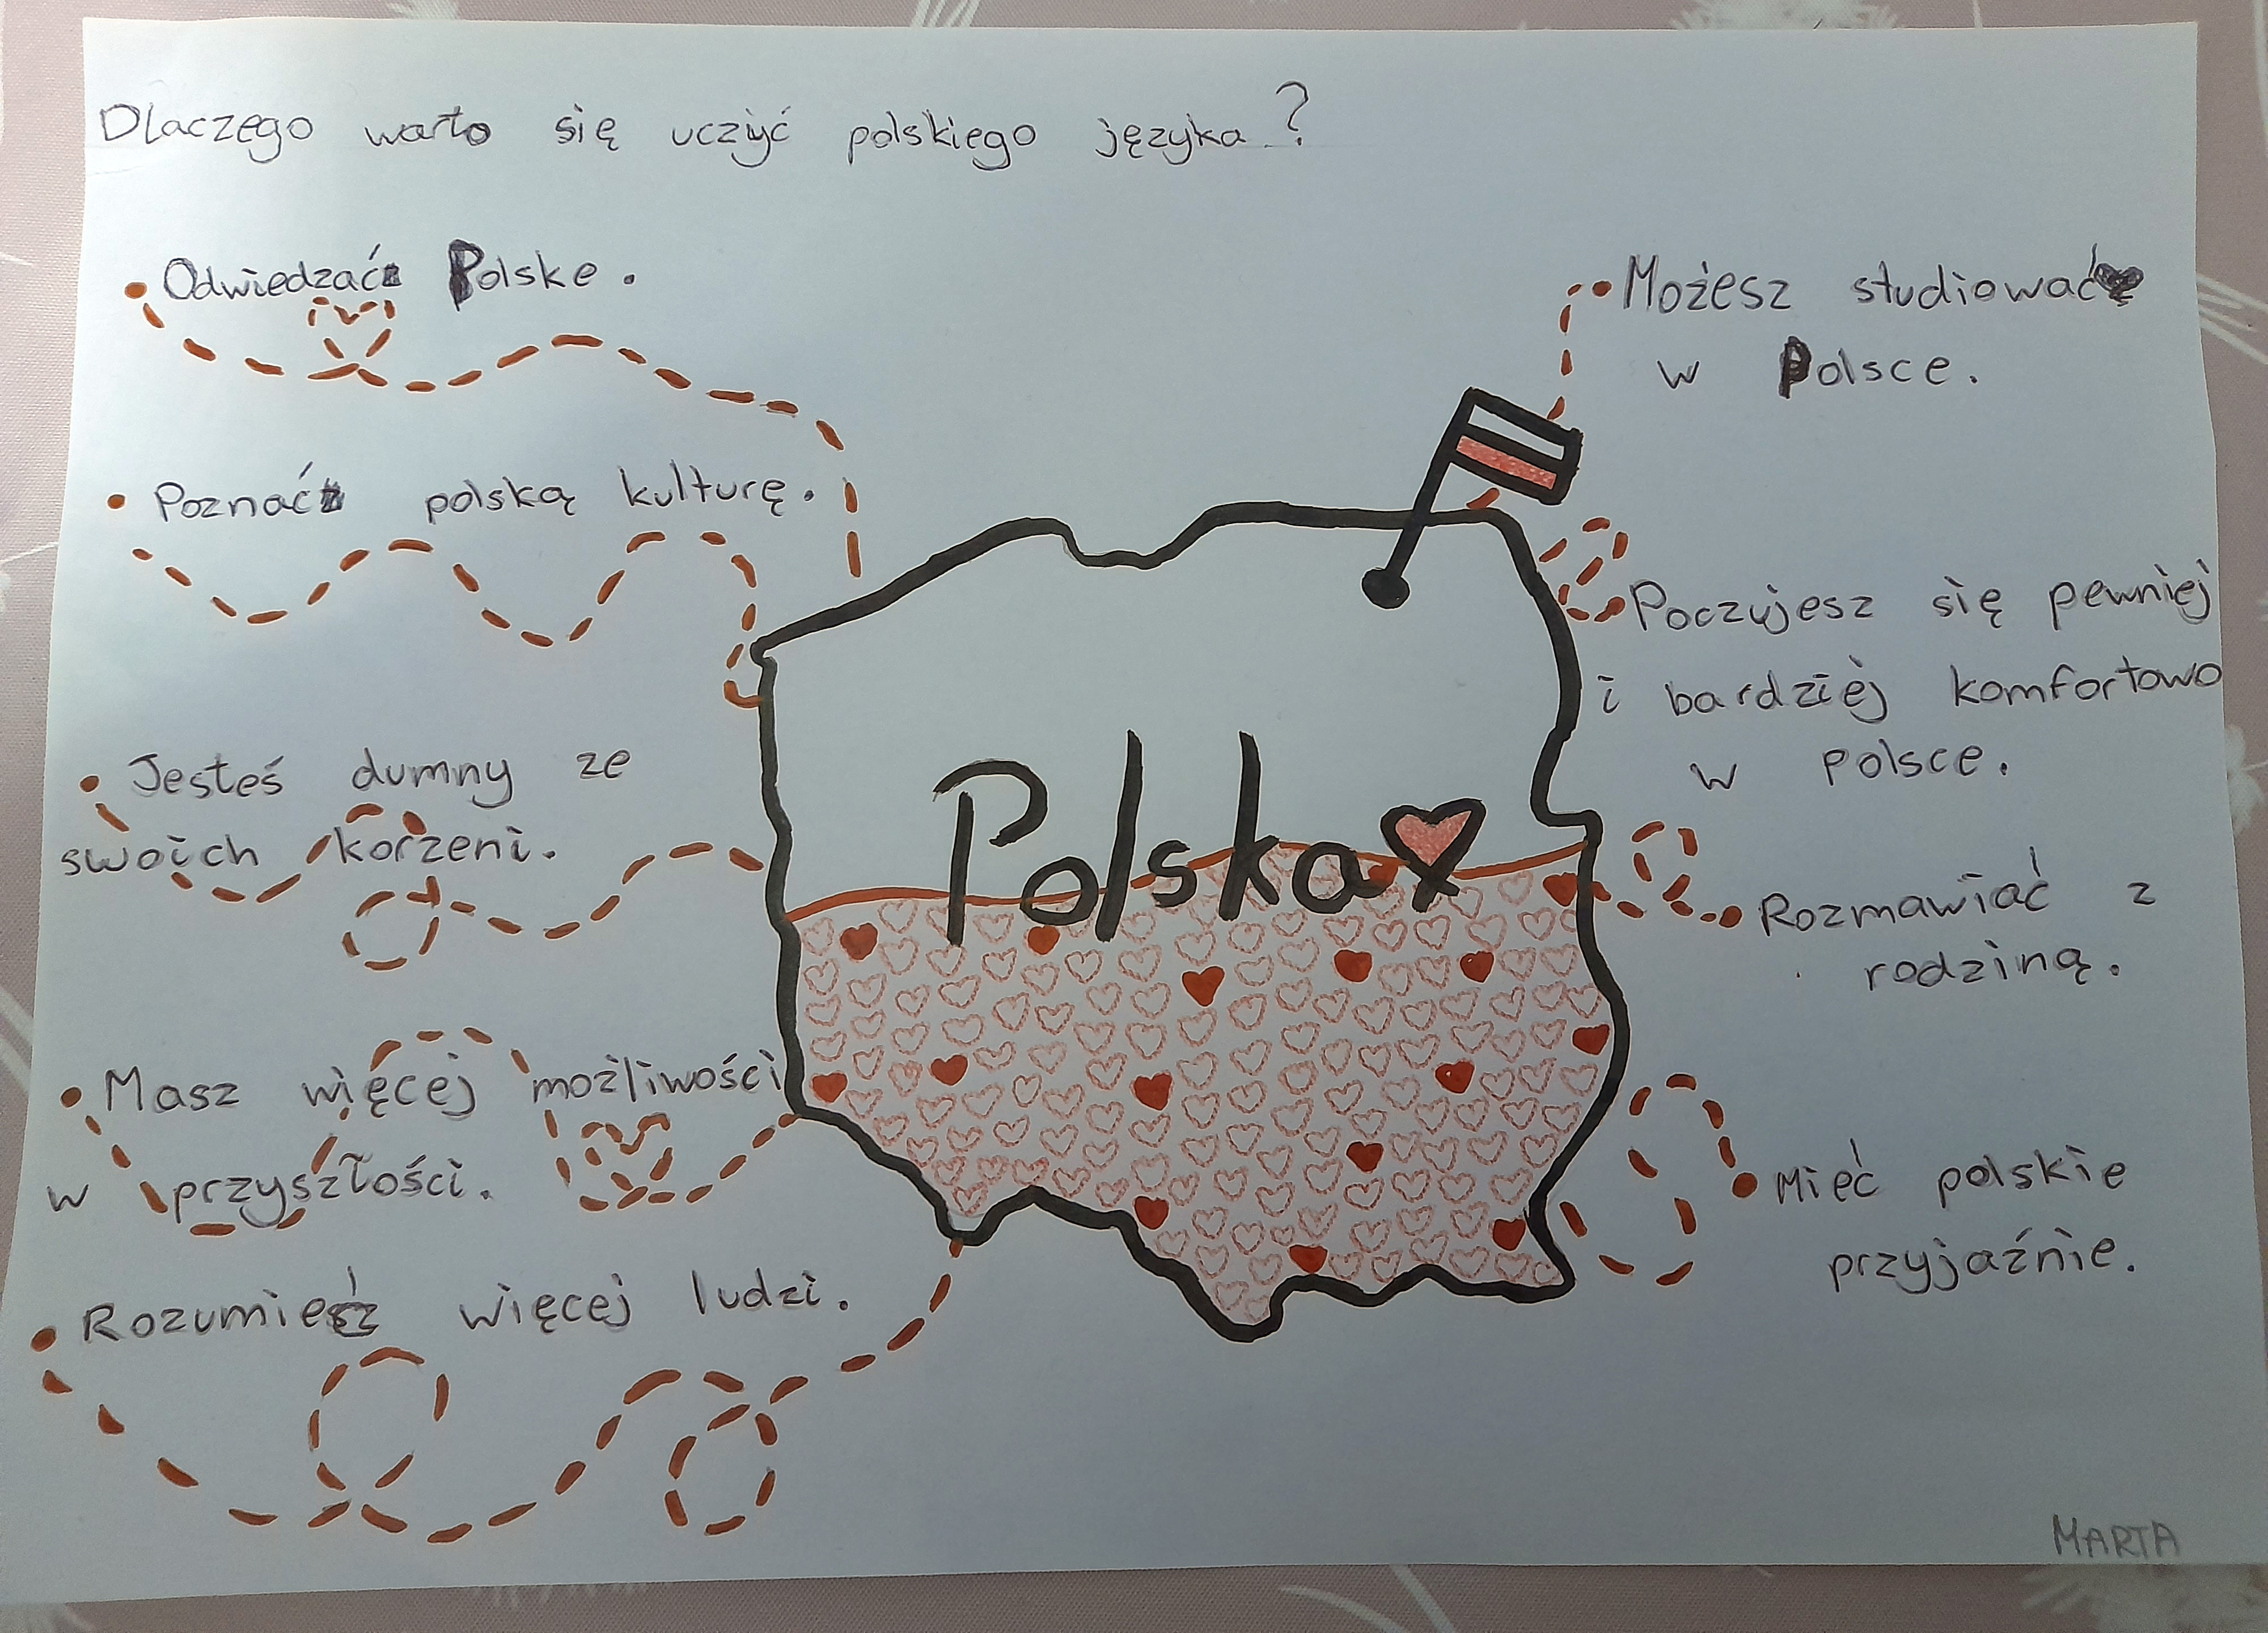 Dlaczego warto się uczyć polskiego języka?
Odwiedzać Polske.
Poznać polską kulturę.
Jesteś dumny ze
swoich korzeni.
Masz więcej możliwości
w przyszłości.
Rozumieć więcej ludzi.
Polska
Możesz studiować
w Polsce.
Poczujesz się pewniej
i bardziej komfortowo
w polsce.
Rozmawiać z
rodziną.
Mieć polskie
przyjaźnie.
MARTA